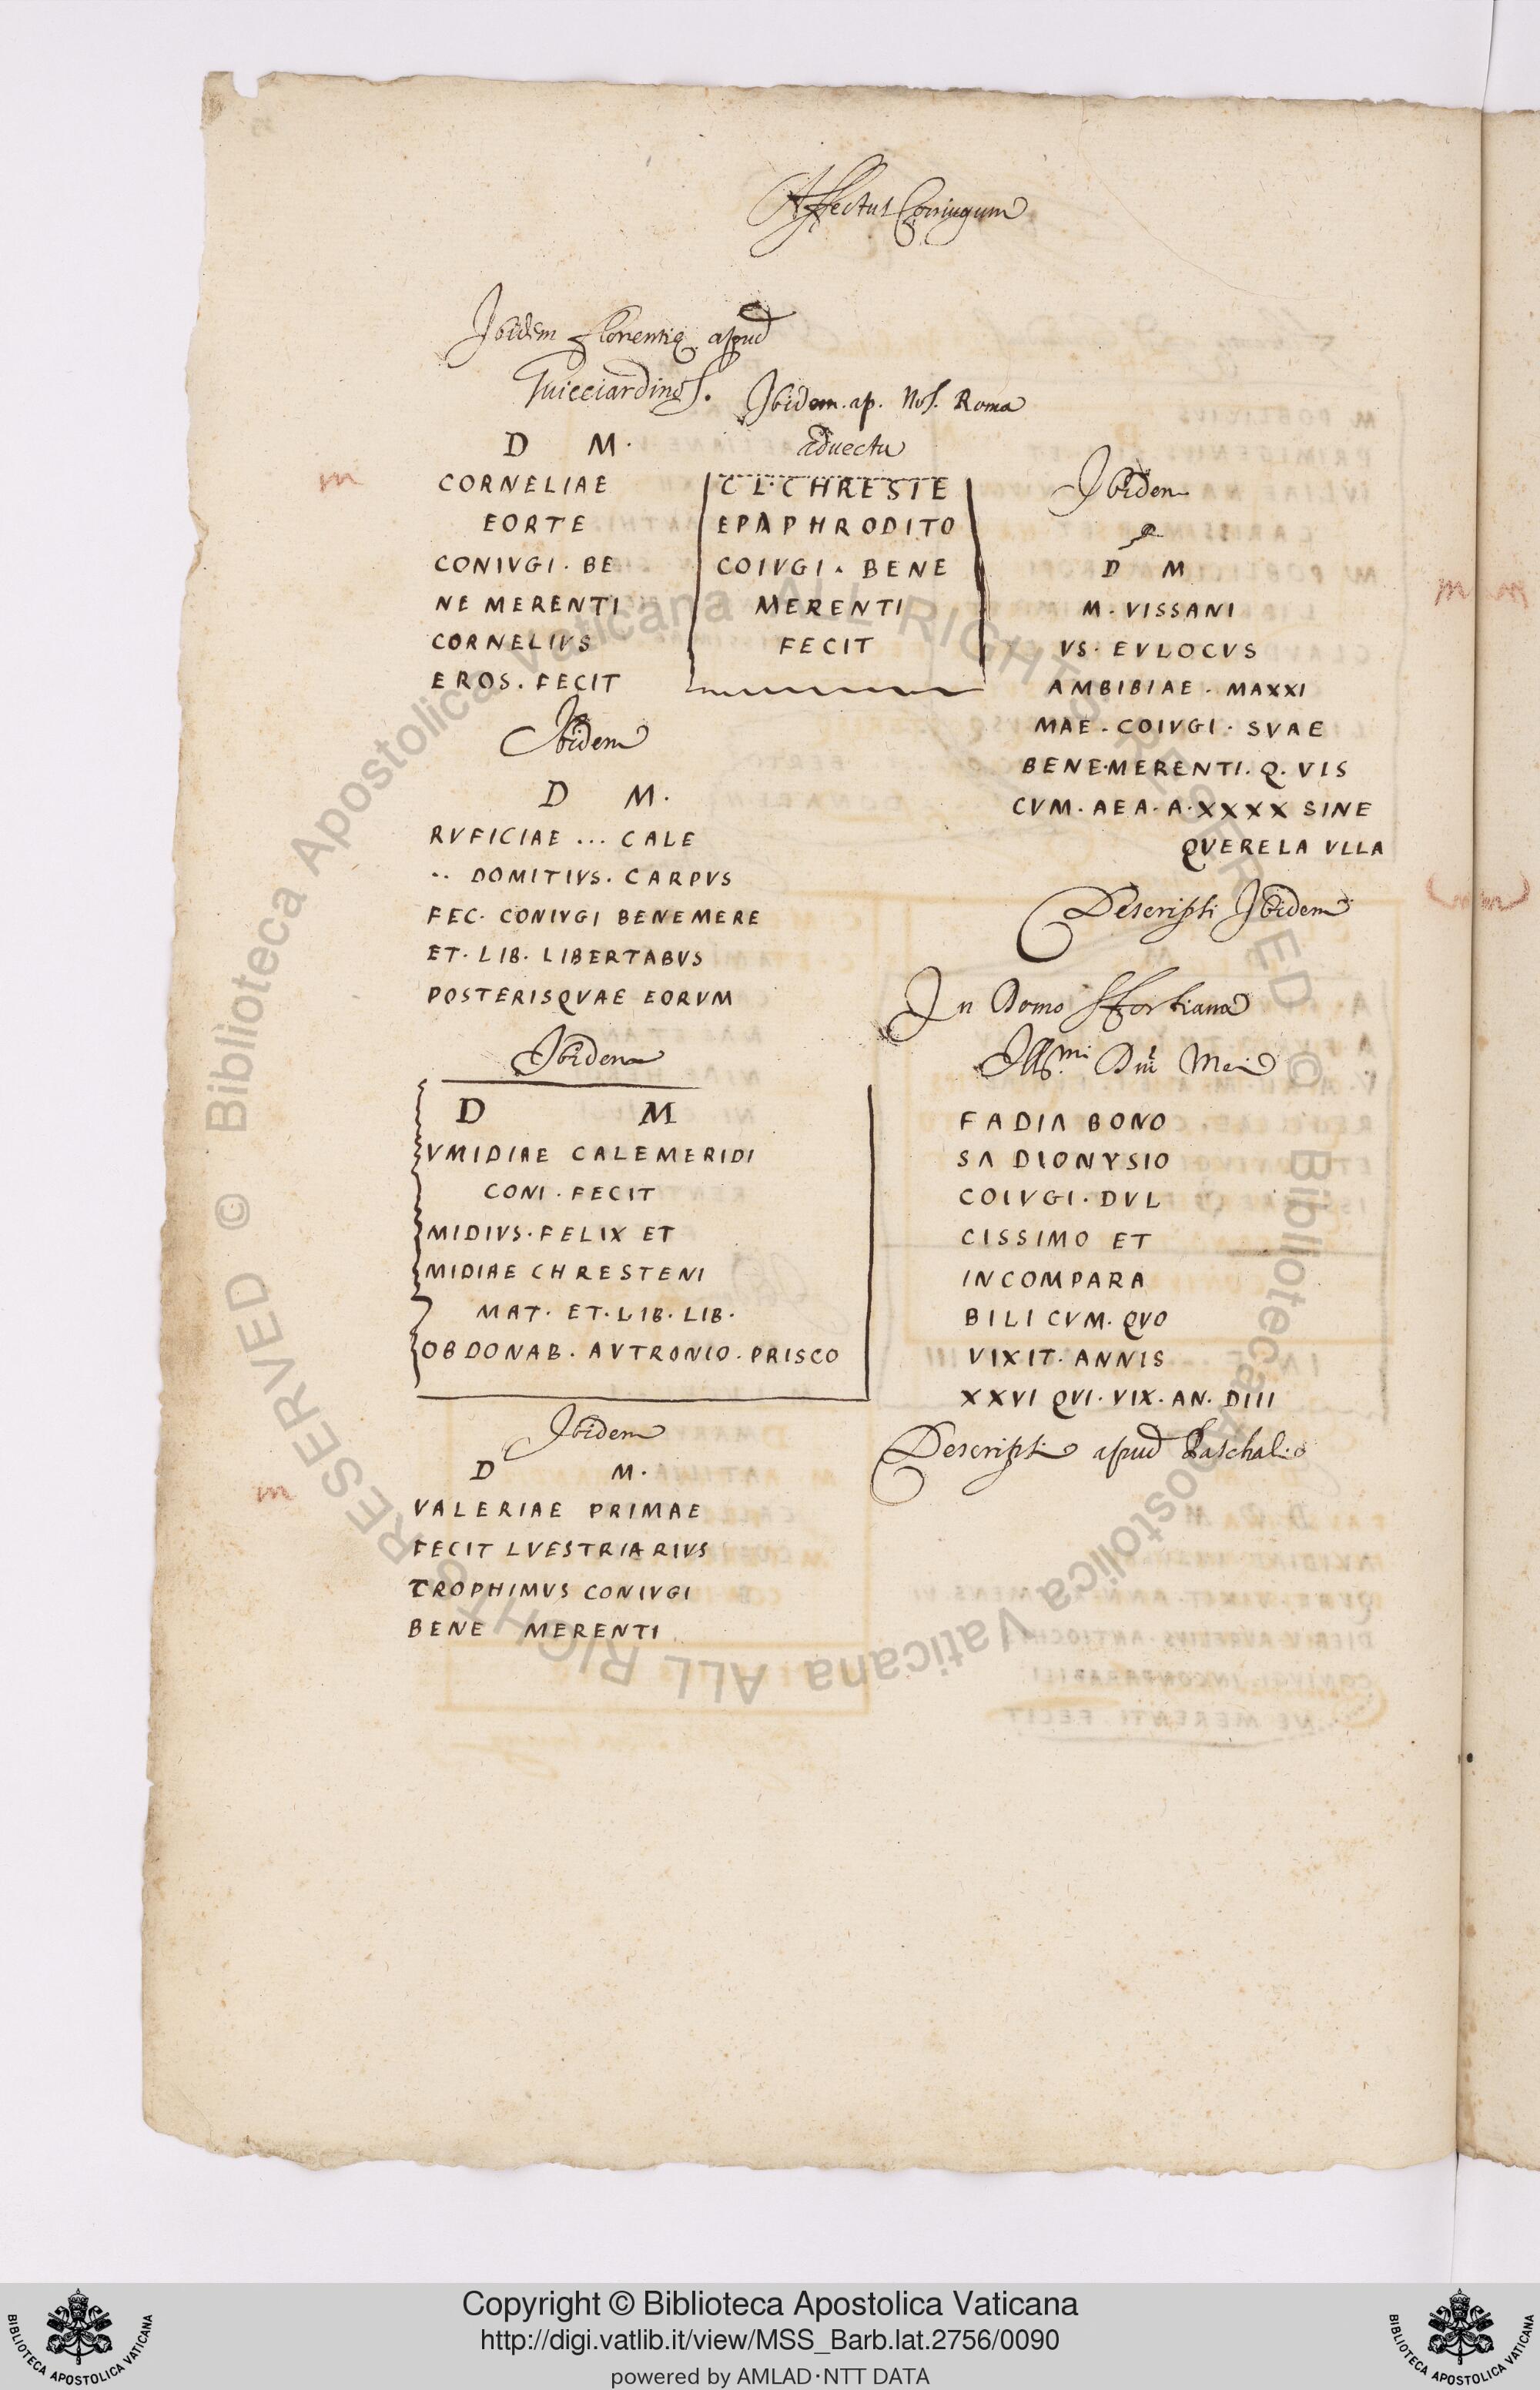 Affectus Coniugum
Ibidem Florentię apud
Guicciardinos.
D M.
CORNELIAE
EORTE
CONIVGI. BE
NE MERENTI
CORNELIVS
EROS. FECIT
Ibidem
D M.
RVFICIAE ... CALE
.. DOMITIVS. CARPVS
FEC. CONIVGI BENEMERE
ET. LIB. LIBERTABVS
POSTERISQVAE EORVM
Ibidem
D M
VMIDIAE CALEMERIDI
CONI. FECIT
MIDIVS. FELIX ET
MIDIAE CHRESTENI
MAT. ET. LIB. LIB.
OBDONAB. AVTRONIO. PRISCO
Ibidem
D M.
VALERIAE PRIMAE
FECIT LVESTRIARIVS
TROPHIMVS CONIVGI
BENE MERENTI
Ibidem. ap. Nos. Roma
aduecta
CL. CHRESTE
EPAPHRODITO
COIVGI. BENE
MERENTI
FECIT
Ibidem
D M
M. VISSANI
VS. EVLOCVS
AMBIBIAE. MAXXI
MAE. COIVGI. SVAE
BENE.MERENTI. Q. VIS
CVM. AEA. A. XXXX SINE
QVERELA VLLA
Descripsi Ibidem
In Domo Sfortiana
Illmi Dni Mei
FADIA BONO
SA DIONYSIO
COIVGI. DVL
CISSIMO ET
INCOMPARA
BILI CVM. QVO
VIXIT. ANNIS
XXVI QVI. VIX. AN. DIII
Descripsi apud
m
m
Copyright © Biblioteca Apostolica Vaticana
http://digi.vatlib.it/view/MSS_Barb.lat.2756/0090
powered by AMLAD·NTT DATA
BIBLIOTECA APOSTOLICA VATICANA
BIBLIOTECA APOSTOLICA VATICANA
© Biblioteca Apostolica Vaticana ALL RIGHTS RESERVED © Biblioteca Apostolica Vaticana ALL RIGHTS RESERVED